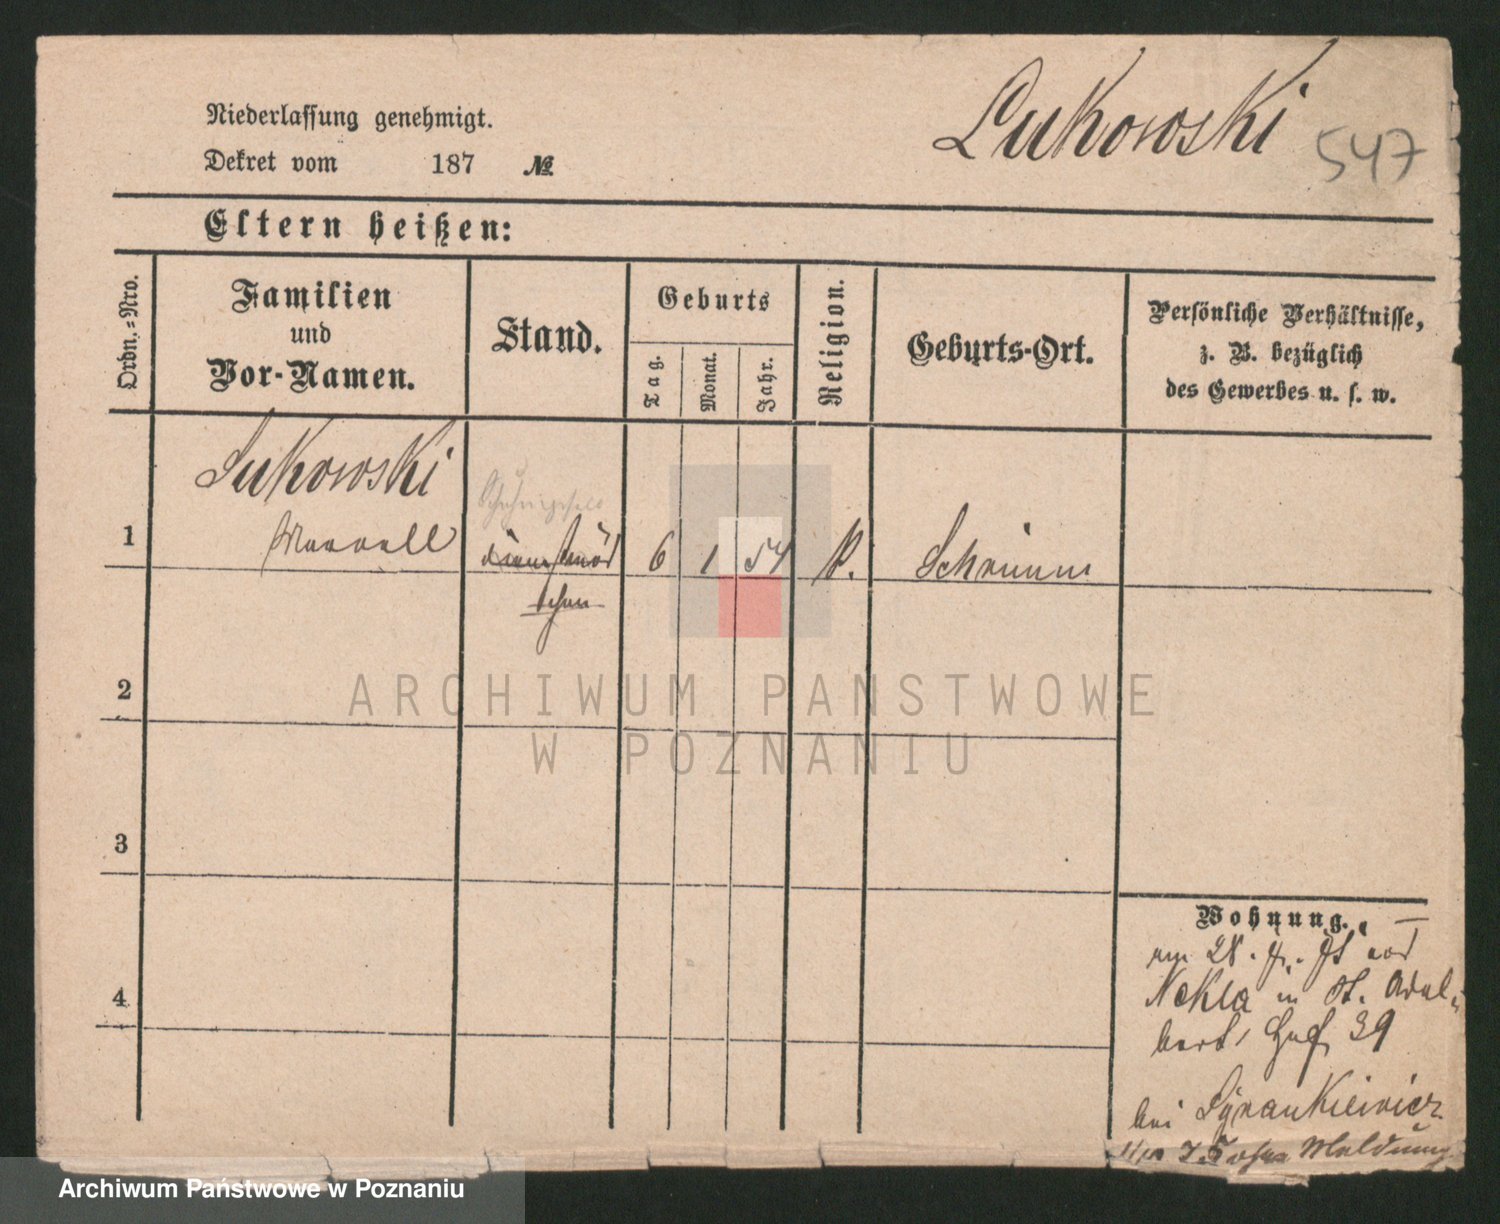 Lukowski 547
Niederlassung genehmigt.
Dekret vom 187 №
Eltern heißen:
Ordn.=Nro.
Familien
und
Vor-Namen.
Stand.
Geburts
Tag.
Monat.
Jahr.
Religion.
Geburts-Ort.
Persönliche Verhältnisse,
z. B. bezüglich
des Gewerbes u. s. w.
1
Lukowski
6 1 54
Schrimm
2
3
4
Wohnung.
Nekla in St. Adal-
bert 39
bei
Meldung
ARCHIWUM PANSTWOWE
W POZNANIU
Archiwum Państwowe w Poznaniu